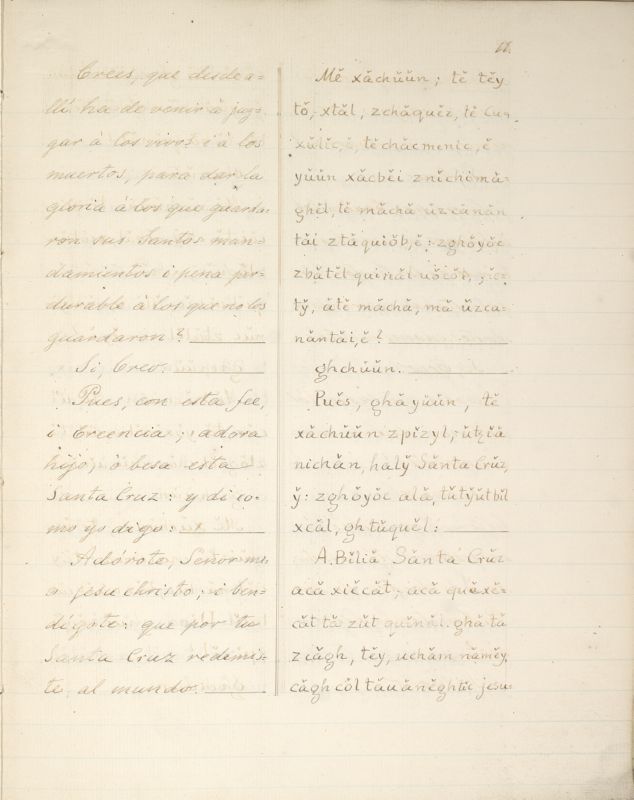 11.
Crees, que desde a=
llí ha de venir à juz=
gar à los vivos i à los
muertos, para dar la
gloria à los que guarda=
ron sus Santos man=
damientos i pena per=
durable à los que no los
guardaron?
Si, Creo.
Pues, con esta fee,
i Creencia; adora
hijo, ò besa esta
Santa Cruz: y di co=
mo yo digo:
Adórote, Señor mi=
o Jesu christo; i ben=
dígote: que por tu
Santa Cruz redemis=
te, al mundo.
Mĕ xăchŭŭn; tĕ tĕy
tŏ, xtăl, zchăquĕz, tĕ
tĕ chăcmenic, ĕ
yŭŭn xăcbĕi znichimă=
ghĕl, tĕ măchă ŭzcănăn
tăi ztăquiŏb, ĕ: zghŏyŏc
zbătĕl quinăl
tŷ, ătĕ măchă, mă ŭzca=
năntăi, ĕ?
ghchŭŭn.
Puĕs, ghăyŭŭn, tĕ
xăchŭŭn zpĭzyl; ŭtztă
nichăn, halŷ Sănta Crŭz,
ŷ: zghŏyŏc ală, tŭtŷŭtbil
xcăl, ghtŭquĕl:
A. Bĭliă Sănta Crŭz
acă xiĕcăt; acă quĕxĕ=
căt tă zŭt quĭnăl. ghă tă
zcăgh, tĕy, uchăm nămĕy,
căgh cŏl tăuănĕghtic jesu=